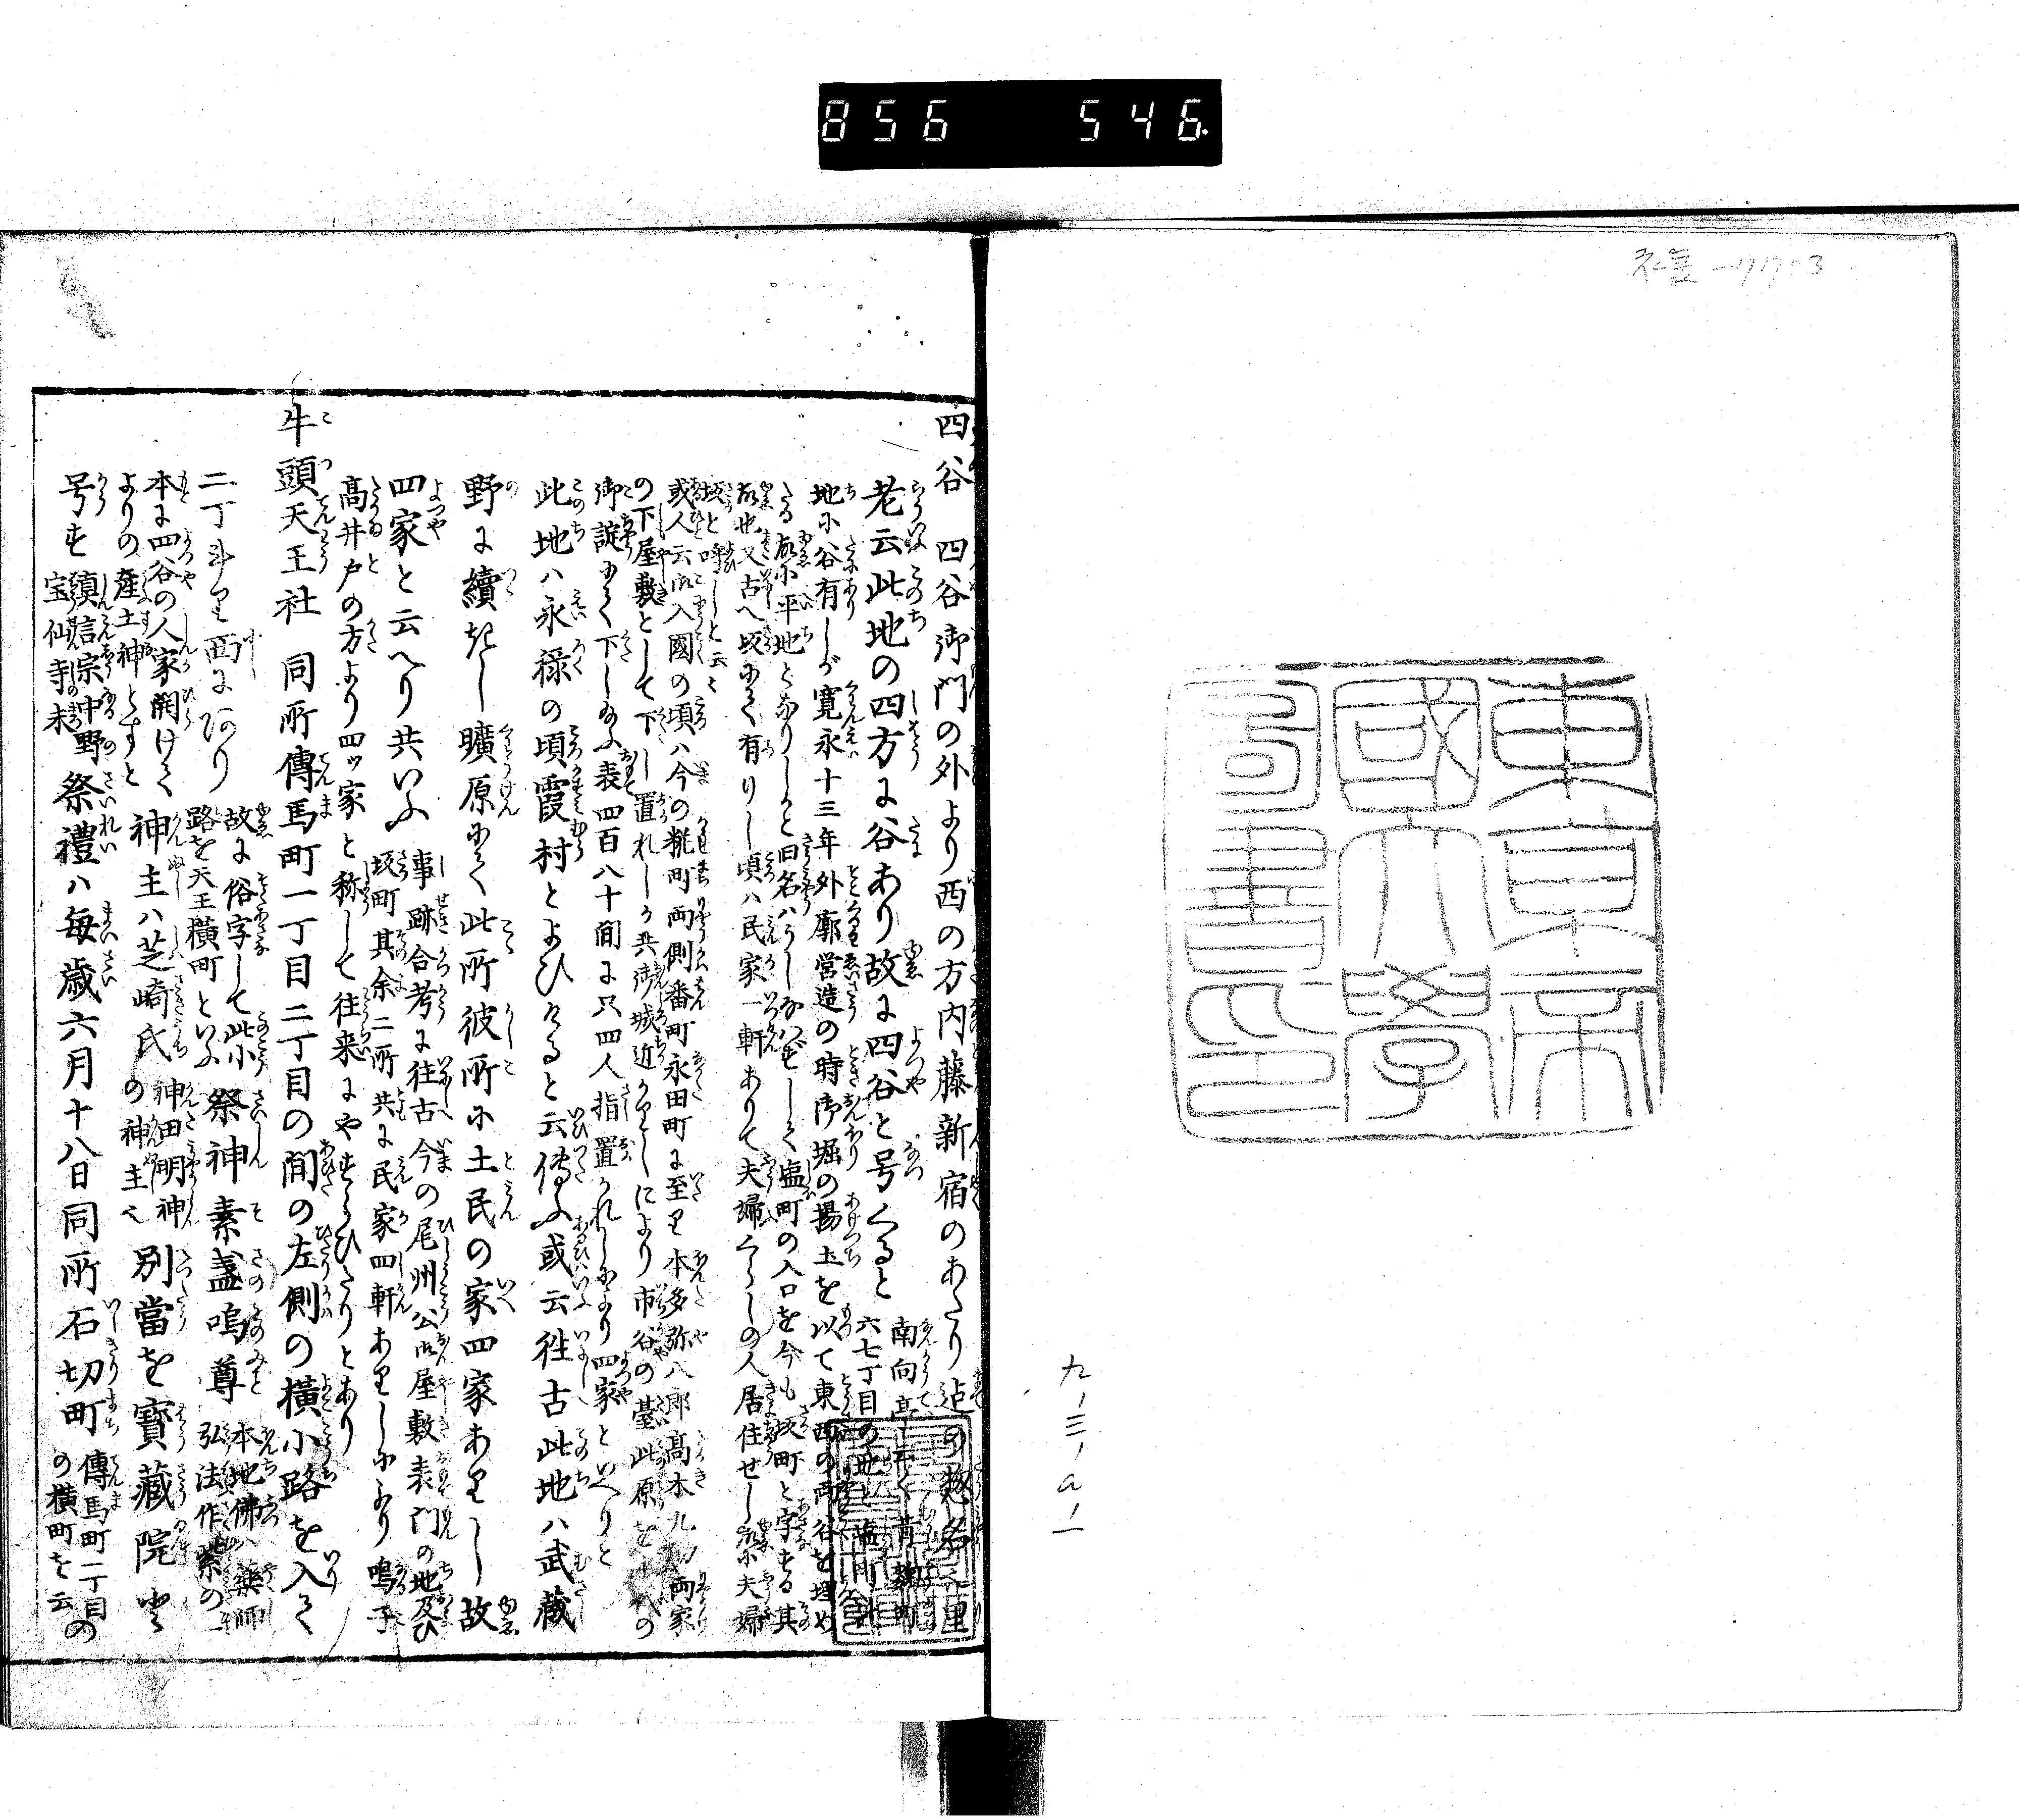 856 546.
東京帝
國大學
圖書印
九ノ三ノaノ一
四谷 四谷御門の外より西の方内藤新宿のあたり迄の惣名
老云此地の四方に谷あり故に四谷と号くると
南向亭
六七丁目の地
地に谷有しが寛永十三年外廓営造の時御堀の揚土を以て東西の両谷を埋め
たる故に平地となりしと旧名はうしなはずして塩町の入口を今も坂町と字する其
故也又古へ坂にて有りし頃ハ民家一軒ありて夫婦くらしの人居住せし故に夫婦
坂と呼しと云々
或人云御入國の頃ハ今の糀町両側番町永田町に至り本多弥八郎高木九ノ両家
の下屋敷として下し置れしか共御城近かりしにより市谷の臺此原を
御諚にて下し給ふ表四百八十間に只四人指置かれしにより四家といへりと
此地ハ永禄の頃霞村とよひけると云傳ふ或云徃古此地ハ武蔵
野に續きし曠原にて此所彼所に土民の家四家ありし故
四家と云へり共いふ
事跡合考に往古今の尾州公御屋敷表門の地及ひ
坂町其余二所共に民家四軒ありしにより鳴子
高井戸の方より四ッ家と称して往来にやすらひたりとあり
牛頭天王社 同所傳馬町一丁目二丁目の間の左側の横小路を入て
二丁斗り西にあり
故に俗字して此小
路を天王横町といふ
祭神素盞嗚尊
本地佛ハ薬師
弘法作
本に四谷の人家開けて
よりの産土神とすと
神主ハ芝崎氏
神田明神
の神主也
別當を寶蔵院と
号す
真言宗中野
宝仙寺末
祭禮ハ毎歳六月十八日同所石切町
傳馬町一丁目の
の横町を云